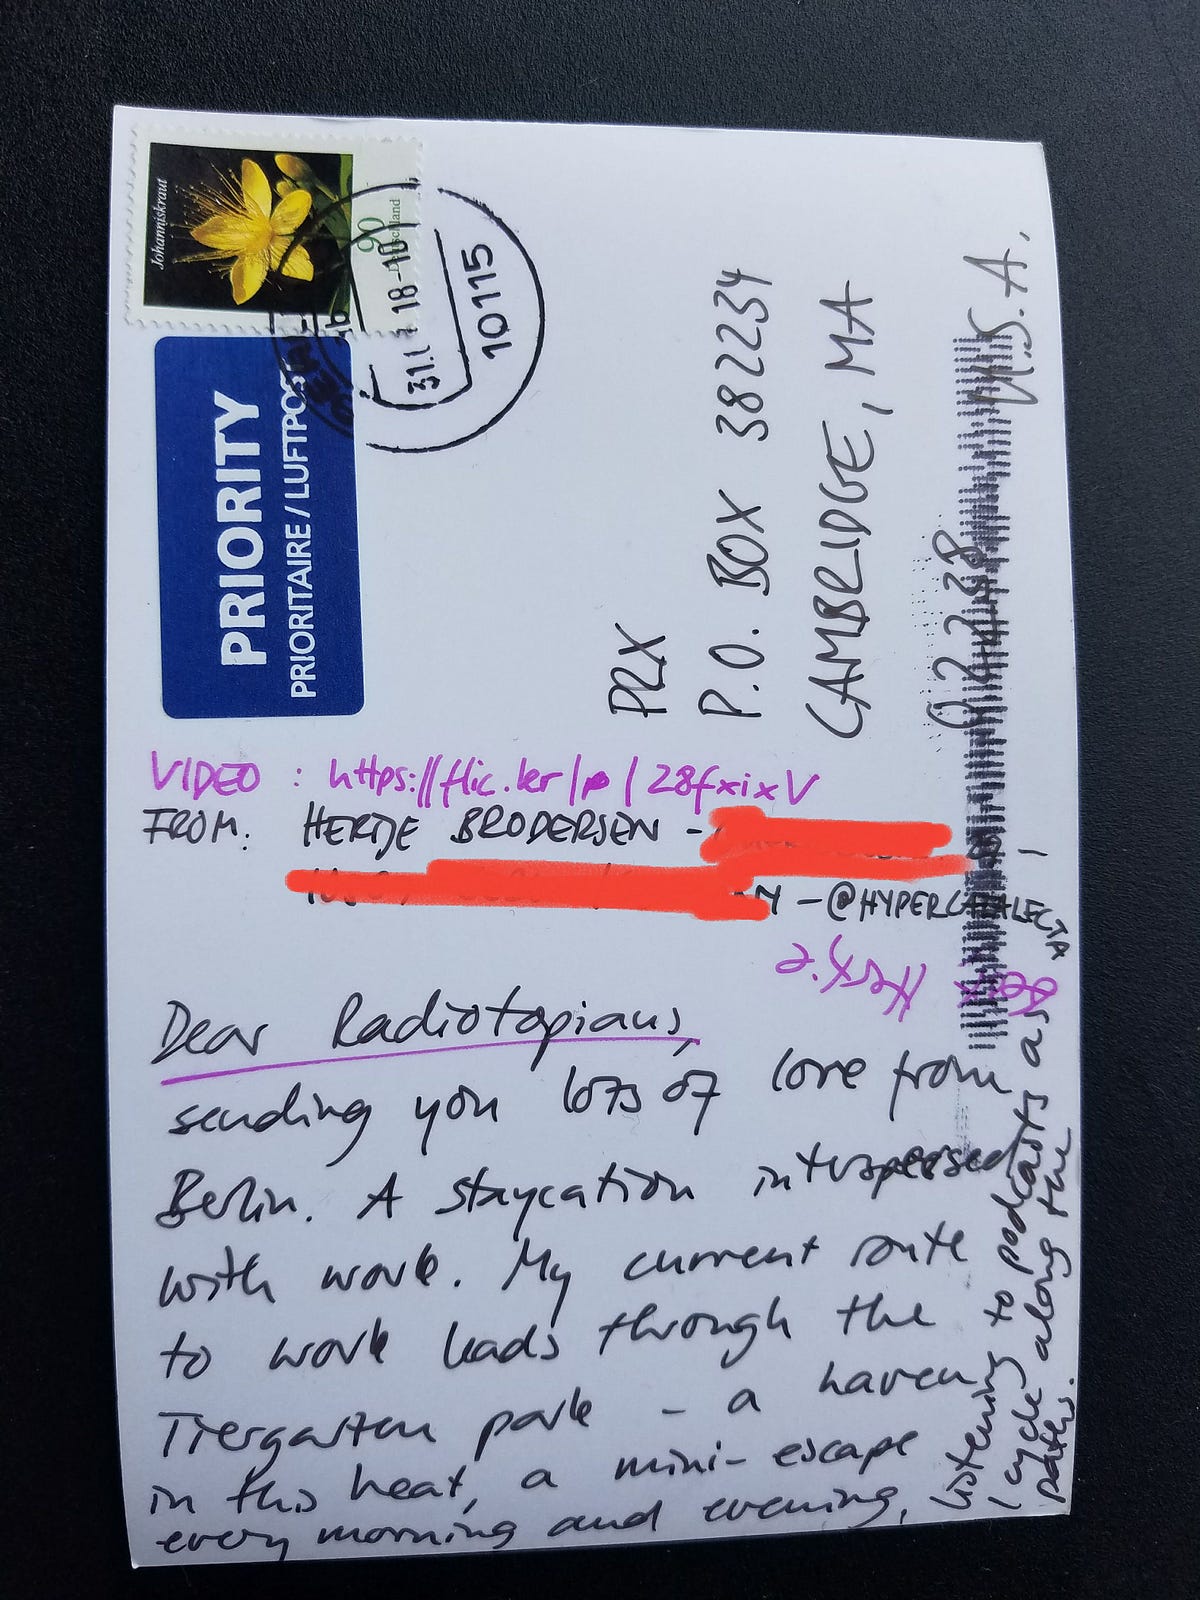 Johanniskraut
90
Deutschland
10115
PRIORITY
PRIORITAIRE / LUFTPOST
PRX
P.O. BOX 382234
CAMBRIDGE, MA
02238
U.S.A.
VIDEO : https://flic.kr/p/28fxixV
FROM: HERTJE BRODERSEN -
- @HYPERCATALECTA
Dear Radiotopians,
sending you lots of love from
Berlin. A staycation interspersed
with work. My current route
to work leads through the
Tiergarten park - a haven
in this heat, a mini-escape
every morning and evening,
listening to podcasts as
I cycle along the
paths.